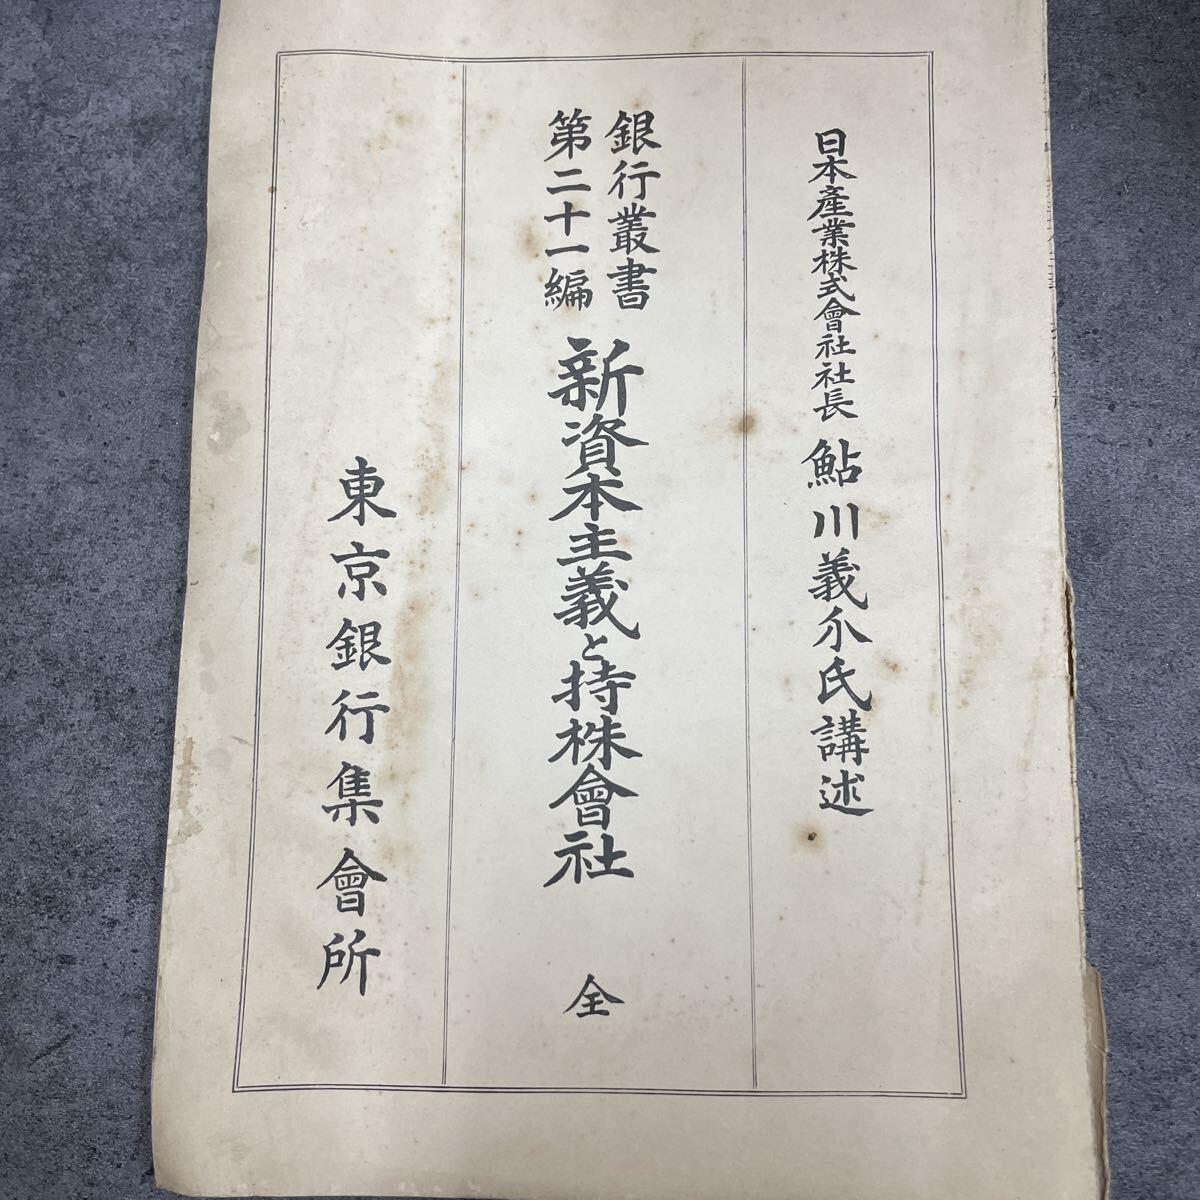 日本產業株式會社社長 鮎川義介氏講述
銀行叢書
第二十一編
新資本主義と持株會社 全
東京銀行集會所